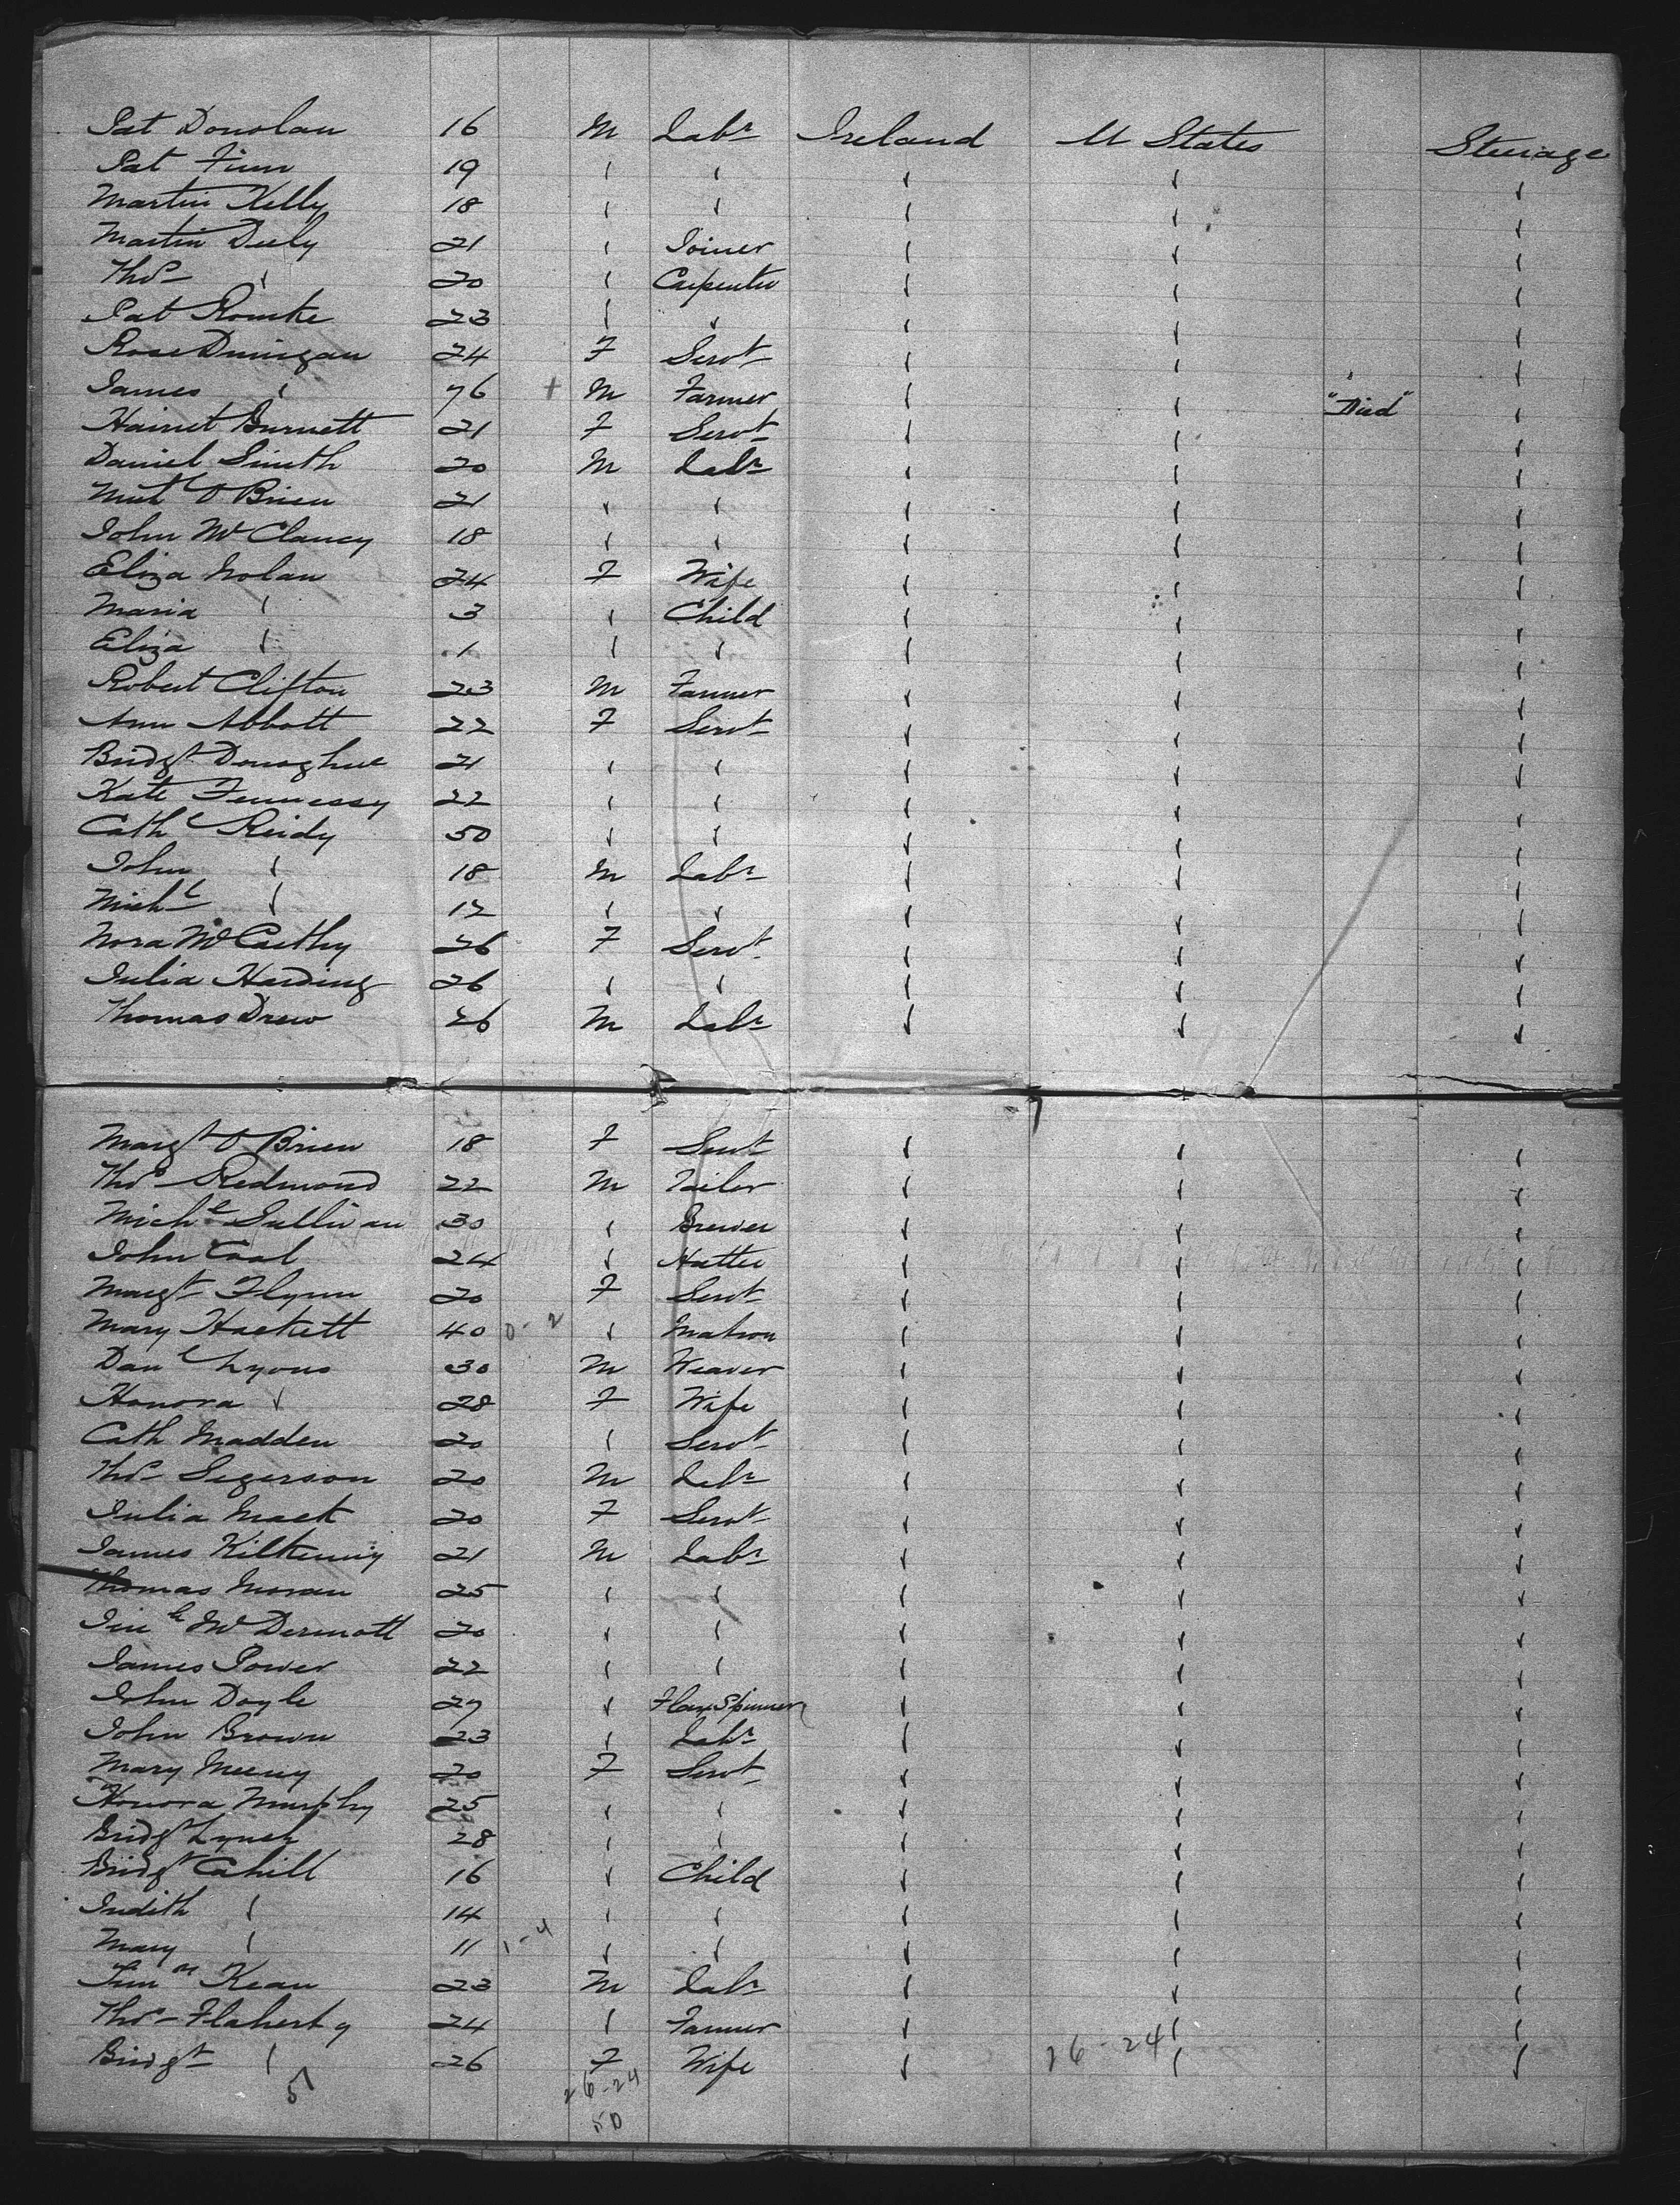 Pat Donolan 16 M Labr Ireland U States Steerage
Pat Finn 19 " " " " "
Martin Kelly 18 " " " " "
Martin Deely 21 " Joiner " " "
Thos " 20 " Carpenter " " "
Pat Rourke 23 " " " " "
Rose Dunigan 24 F Servt " " "
James " 76 + M Farmer " " "Died" "
Harriet Burnett 21 F Servt " " "
Daniel Smith 20 M Labr " " "
Michl O'Brien 21 " " " " "
John McClancy 18 " " " " "
Eliza Nolan 24 F Wife " " "
Maria " 3 " Child " " "
Eliza " 1 " " " " "
Robert Clifton 23 M Farmer " " "
Ann Abbott 22 F Servt " " "
Bridgt Donoghue 21 " " " " "
Kate Fennessy 22 " " " " "
Cathe Reidy 50 " " " " "
John " 18 M Labr " " "
Michl " 12 " " " " "
Nora McCarthy 26 F Servt " " "
Julia Harding 26 " " " " "
Thomas Drew 26 M Labr " " "
Margt O'Brien 18 F Servt " " "
Thos Redmond 22 M Tailor " " "
Michl Sullivan 30 " Brewer " " "
John 24 " Hatter " " "
Margt Flynn 20 F Servt " " "
Mary Hackett 40 0-2 " Matron " " "
Danl Lyons 30 M Weaver " " "
Honora " 28 F Wife " " "
Cath Madden 20 " Servt " " "
Thos Segerson 20 M Labr " " "
Julia Mack 20 F Servt " " "
James Kilkenny 21 M Labr " " "
Thomas Moran 25 " " " " "
McDermott 20 " " " " "
James Power 22 " " " " "
John Doyle 27 " Flax Spinner " " "
John Brown 23 " Labr " " "
Mary Meeny 20 F Servt " " "
Honora Murphy 25 " " " " "
Bridgt Lynch 28 " " " " "
Bridgt Cahill 16 " Child " " "
Judith " 14 " " " " "
Mary " 11 1-4 " " " " "
Timy Kean 23 M Labr " " "
Thos Flaherty 24 " Farmer " " "
Bridgt " 26 F Wife " 26-24 " "
51 26-24
50